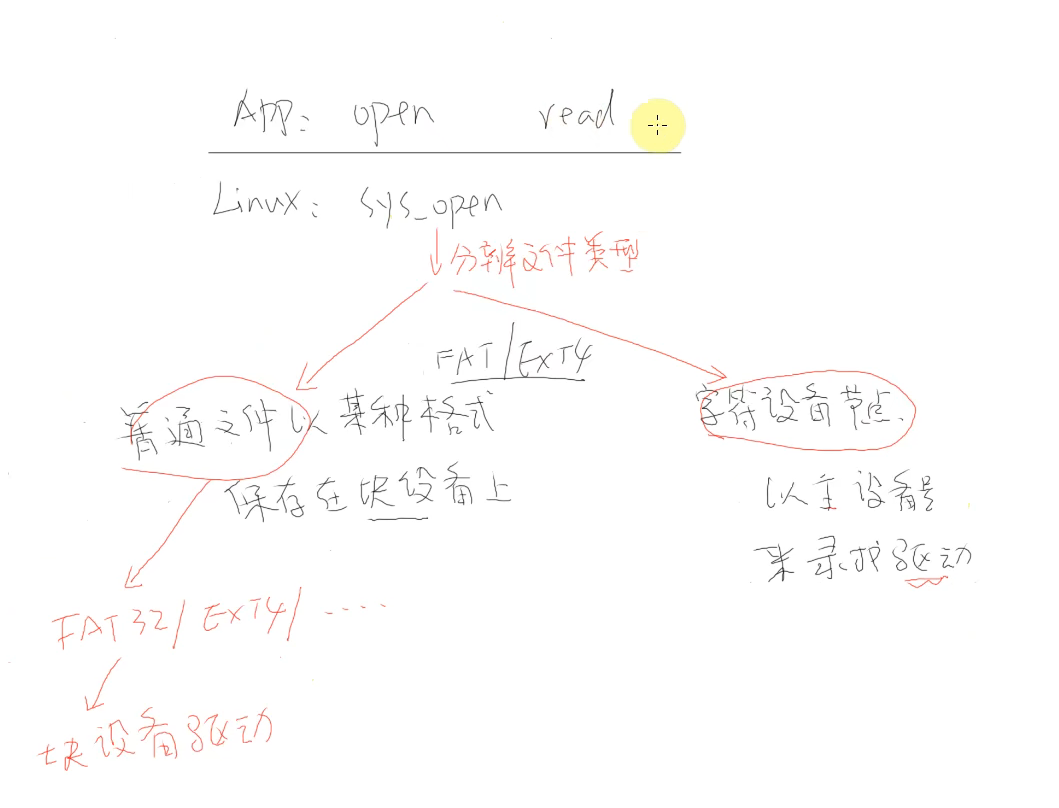 App: open read
Linux: sys_open
分辨文件类型
FAT/EXT4
普通文件以某种格式
保存在块设备上
字符设备节点.
以主设备号
来寻找驱动
FAT32/EXT4/.....
块设备驱动